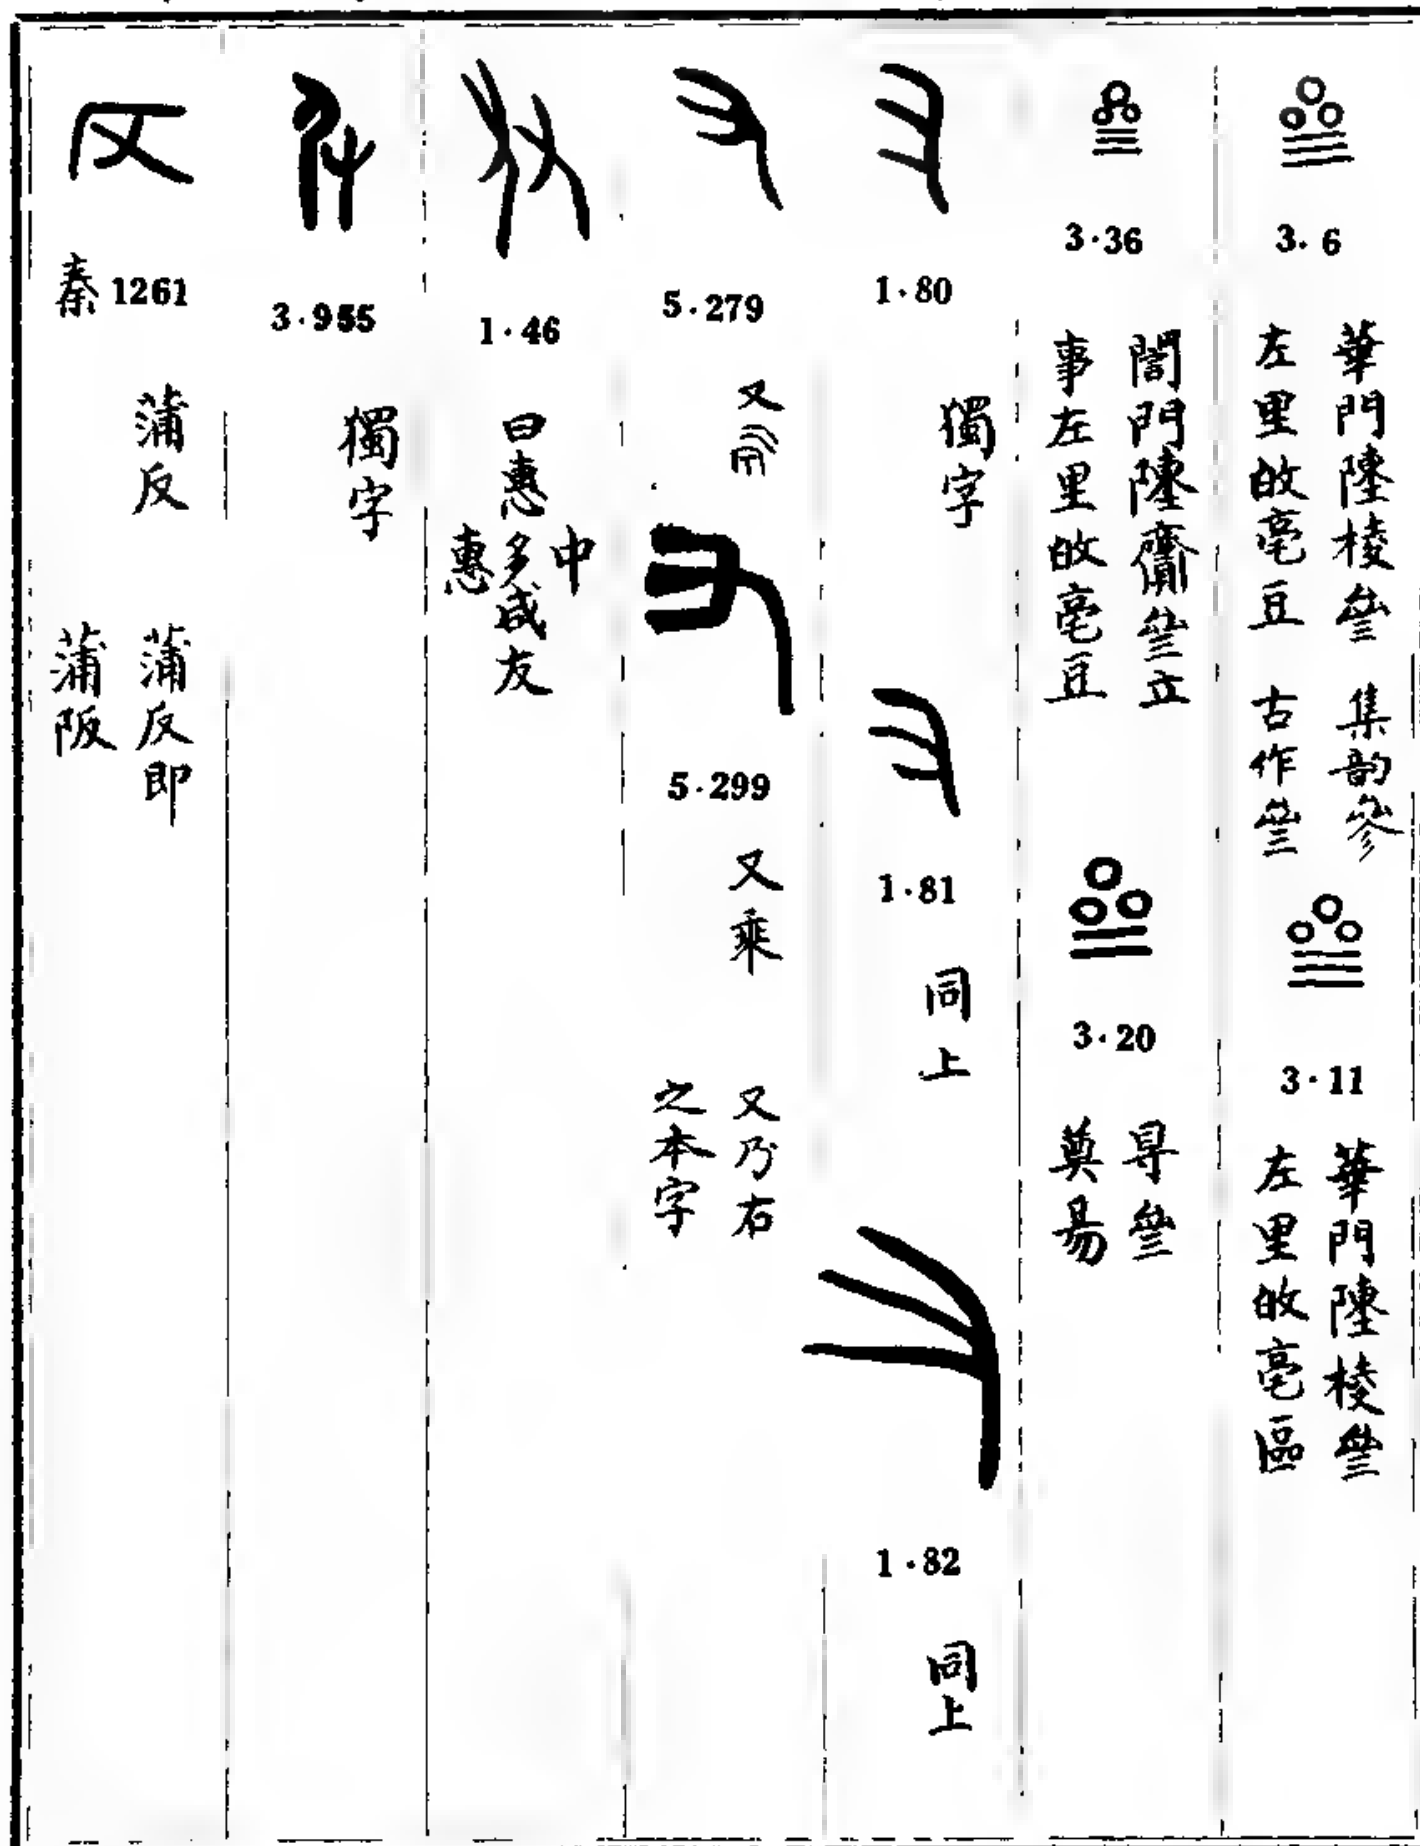 3.6
華門陸棱叁
左里敀亳豆
集韵參
古作叁
3.11
華門陸棱叁
左里敀亳區
3.36
誾門陸齎叁立
事左里敀亳豆
3.20
㝵叁
奠昜
1.80
獨字
1.81
同上
1.82
同上
5.279
又
5.299
又乘
又乃右
之本字
1.46
曰惠多成友
中
惠
3.955
獨字
秦1261
蒲反
蒲反即
蒲阪